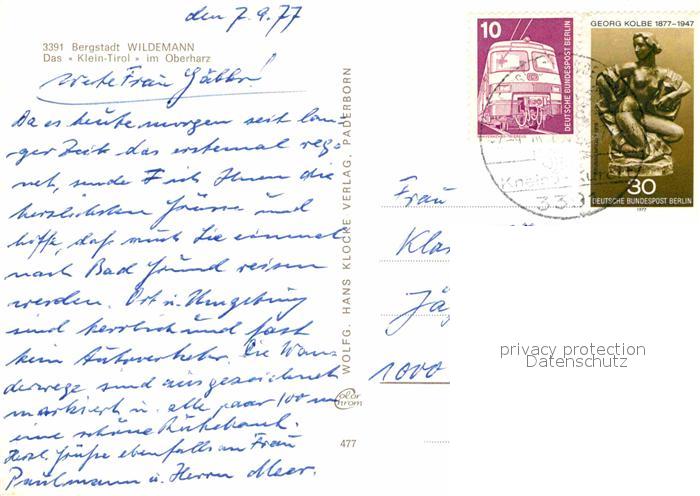 den 7.9.77
3391 Bergstadt WILDEMANN
Das « Klein-Tirol » im Oberharz
Werte Frau
Da es heute morgen seit lan-
ger Zeit das erstemal reg-
net, sende ich Ihnen die
herzlichsten Grüsse und
hoffe, daß auch Sie einmal
nach Bad Grund reisen
werden. Ort u. Umgebung
sind herrlich und fast
kein Autoverkehr. Die Wan-
derwege sind ausgezeichnet
markiert u. alle paar 100 m
eine schöne Ruhebank.
Herzl. Grüße ebenfalls an Frau
Paulmann u. Herrn Meer.
WOLFG. HANS KLOCKE VERLAG, PADERBORN
color
chrom
477
10
DEUTSCHE BUNDESPOST BERLIN
GEORG KOLBE 1877-1947
30
DEUTSCHE BUNDESPOST BERLIN
1977
3391
Frau
Kla
Jä
1000
privacy protection
Datenschutz